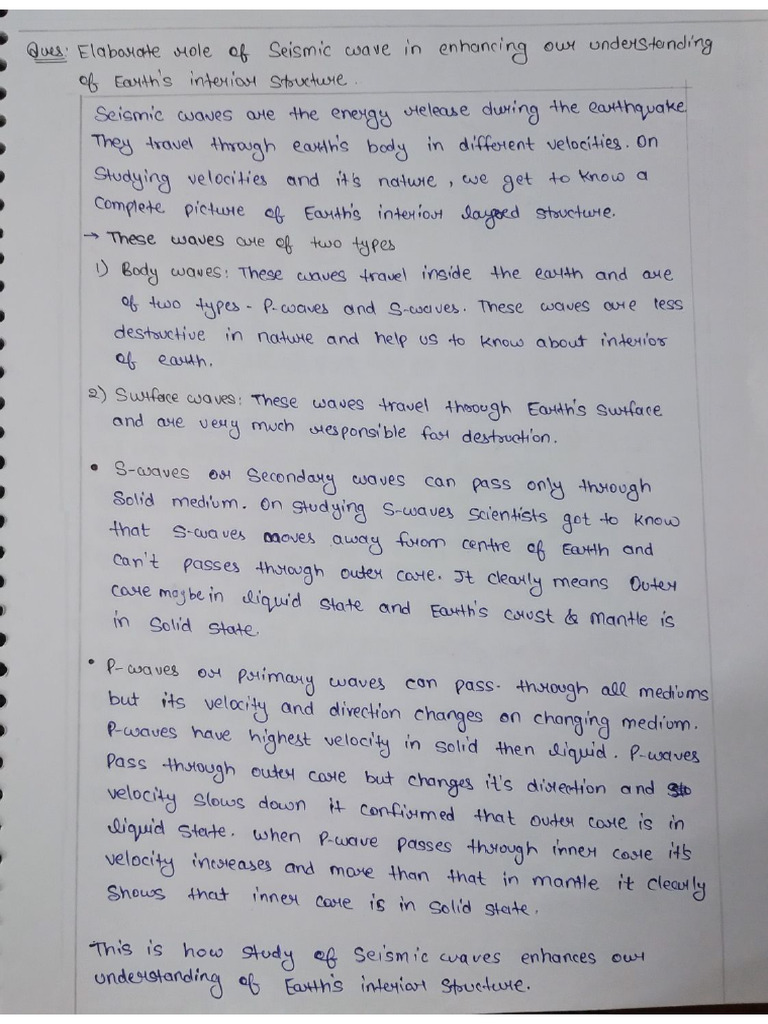 Ques: Elaborate role of Seismic wave in enhancing our understanding
of Earth's interior structure.
Seismic waves are the energy release during the earthquake.
They travel through earth's body in different velocities. On
studying velocities and it's nature, we get to know a
complete picture of Earth's interior layered structure.
→ These waves are of two types
1) Body waves: These waves travel inside the earth and are
of two types - P-waves and S-waves. These waves are less
destructive in nature and help us to know about interior
of earth.
2) Surface waves: These waves travel through Earth's surface
and are very much responsible for destruction.
• S-waves or Secondary waves can pass only through
Solid medium. On studying S-waves scientists got to know
that S-waves moves away from centre of Earth and
can't passes through outer core. It clearly means Outer
core maybe in liquid state and Earth's crust & mantle is
in Solid state.
• P-waves or primary waves can pass through all mediums
but its velocity and direction changes on changing medium.
P-waves have highest velocity in solid then liquid. P-waves
pass through outer core but changes it's direction and
velocity slows down it confirmed that outer core is in
liquid state. When P-wave passes through inner core its
velocity increases and more than that in mantle it clearly
shows that inner core is in solid state.
This is how study of Seismic waves enhances our
understanding of Earth's interior structure.